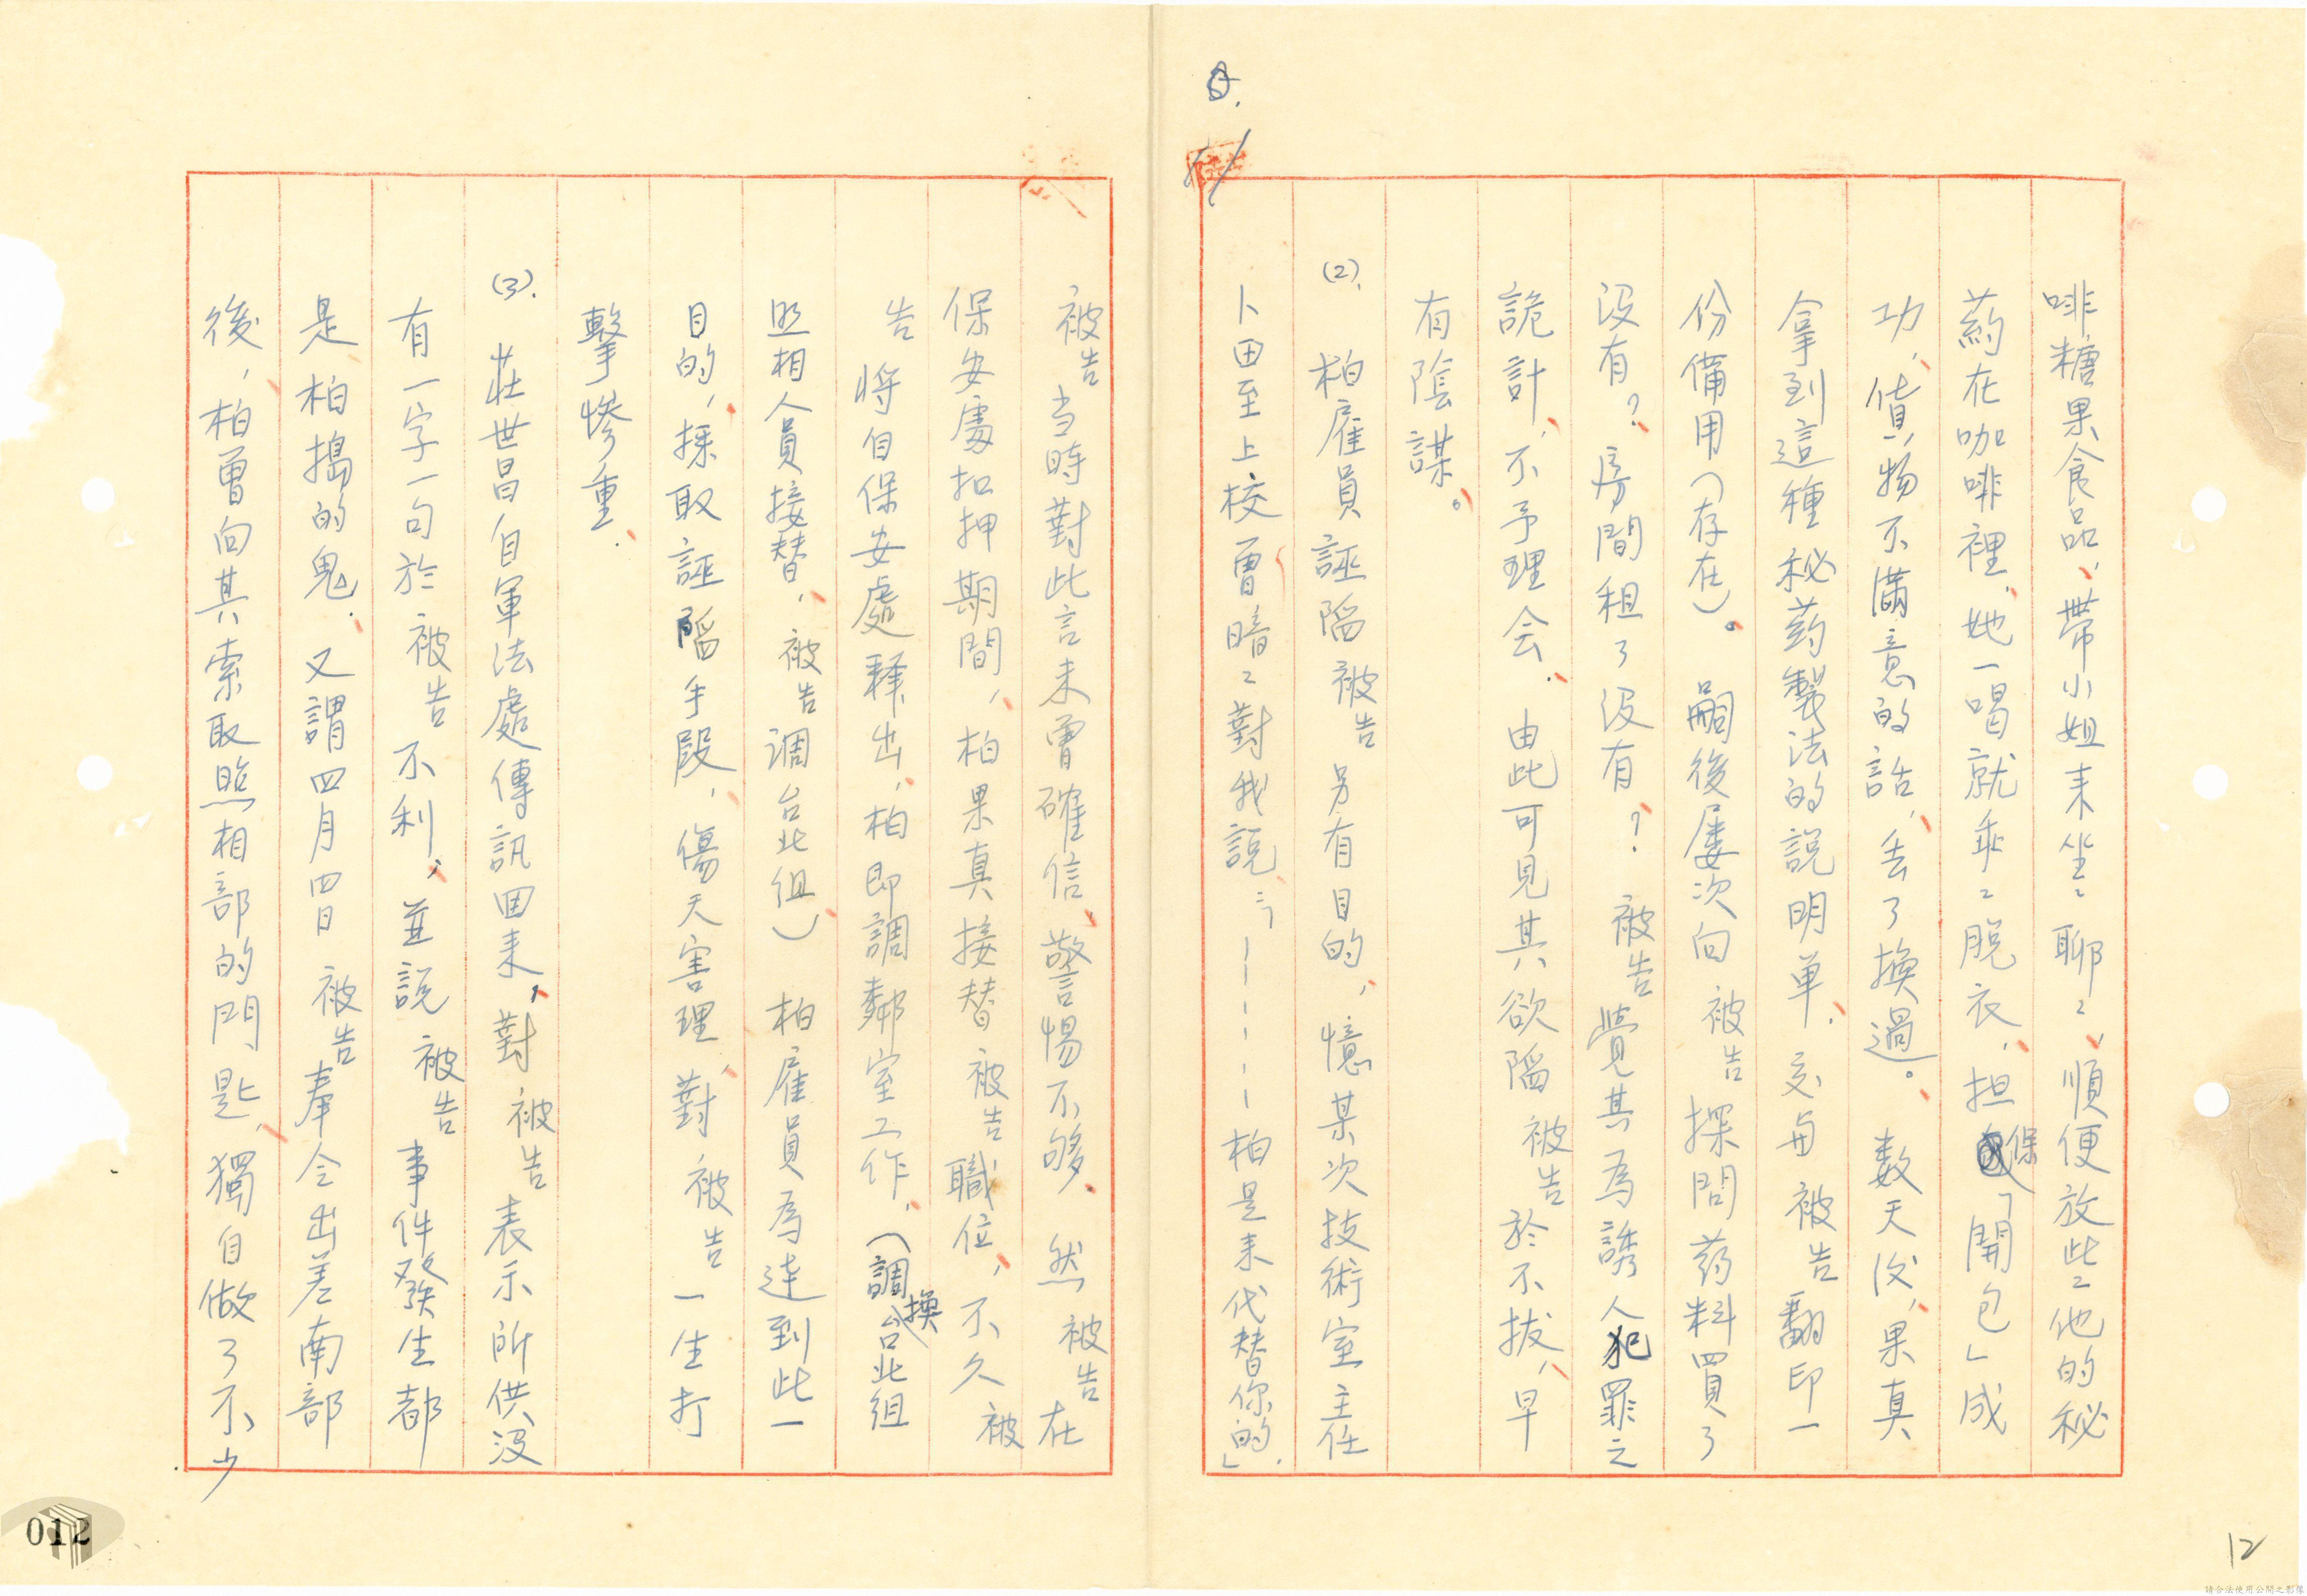 啡糖果食品、帶小姐来坐〻聊〻、順便放些〻他的秘
葯在咖啡裡、她一喝就乖〻脫衣、担保「開包」成
功、貨物不滿意的話、去了換過。數天後、果真
拿到這種秘葯製法的説明单、交与被告翻印一
份備用（存在）。嗣後屢次向被告探問葯料買了
没有？房間租了没有？被告覺其為誘人犯罪之
詭計、不予理会。由此可見其欲陷被告於不拔、早
有陰謀。
(2). 柏雇員誣陷被告另有目的，憶某次技術室主任
卜田至上校曾暗〻對我説：「------柏是来代替你的」。
被告当時對此言未曾確信、警惕不够。然被告在
保安處扣押期間，柏果真接替被告職位，不久被
告将自保安處釋出，柏即調鄰室工作，（調換台北組
照相人員接替，被告调台北组）柏雇員為達到此一
目的，採取誣陷手段，傷天害理，對被告一生打
擊慘重。
(3). 莊世昌自軍法處傳訊回来，對被告表示所供没
有一字一句於被告不利；並説被告事件發生都
是柏搗的鬼。又謂四月四日被告奉令出差南部
後，柏曾向其索取照相部的門匙，獨自做了不少
012
12
請合法使用公開之影像